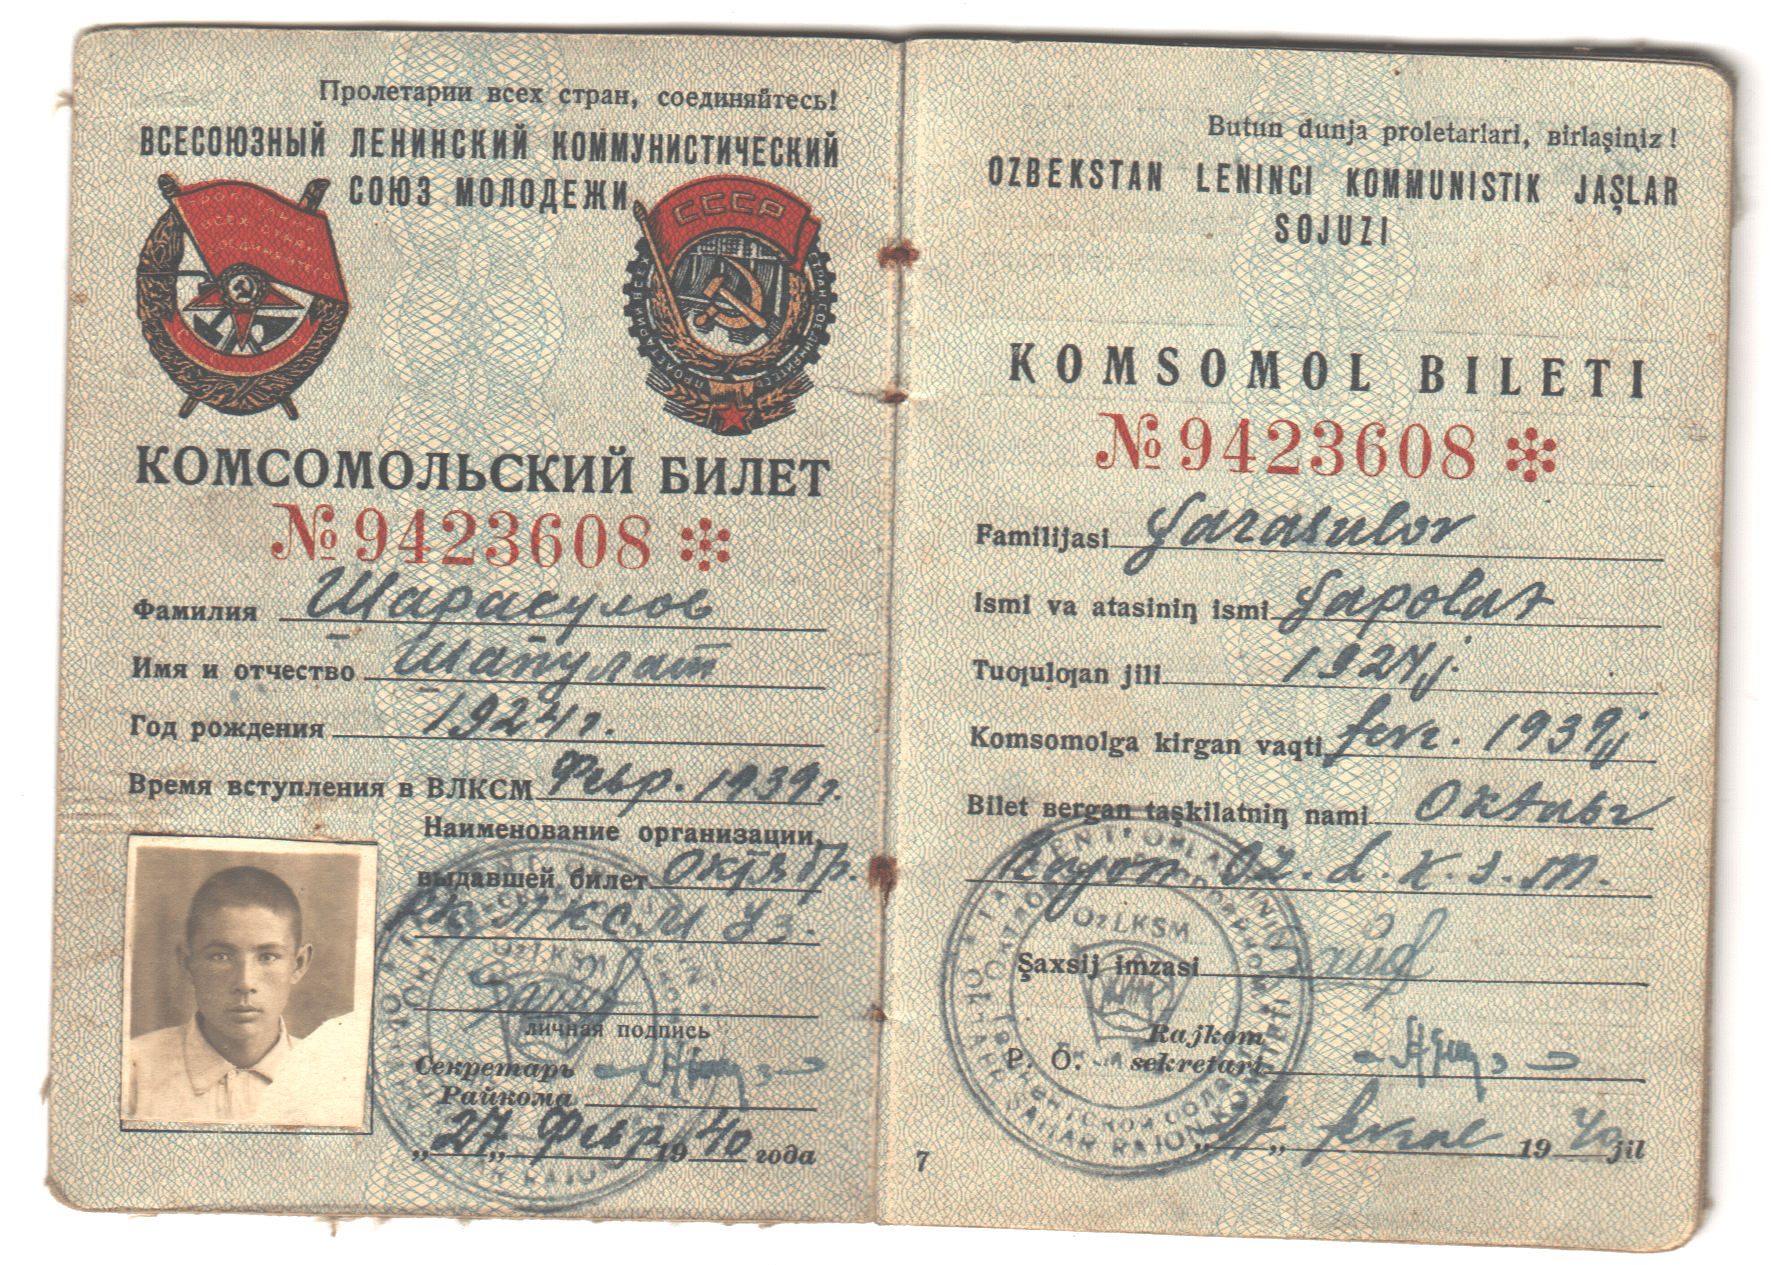 Пролетарии всех стран, соединяйтесь!
ВСЕСОЮЗНЫЙ ЛЕНИНСКИЙ КОММУНИСТИЧЕСКИЙ
СОЮЗ МОЛОДЕЖИ
СССР
КОМСОМОЛЬСКИЙ БИЛЕТ
№ 9423608
Фамилия Шарасулов
Имя и отчество Шапулат
Год рождения 1924 г.
Время вступления в ВЛКСМ Февр. 1939 г.
Наименование организации,
выдавшей билет Октябр.
РК ЛКСМ Уз.
личная подпись
Секретарь
Райкома
„27„ Февр 1940 года
Butun dunja proletarlari, ʙirlaşiꞑiz!
OZBEKSTAN LENINCI KOMMUNISTIK JAŞLAR
SOJUZI
KOMSOMOL BILETI
№ 9423608
Familijasi Şarasulov
Ismi va atasiniꞑ ismi Şapolat
Tuƣulƣan jili 1924 j.
Komsomolga kirgan vaqti fevr. 1939 j
Bilet ʙergan taşkilatniꞑ nami Oktabr
Rajon Oz. L. K. S. M.
OzLKSM
Şaxsij imzasi
Rajkom
P. O. sekretari
„27„ fevral 1940 jil
7